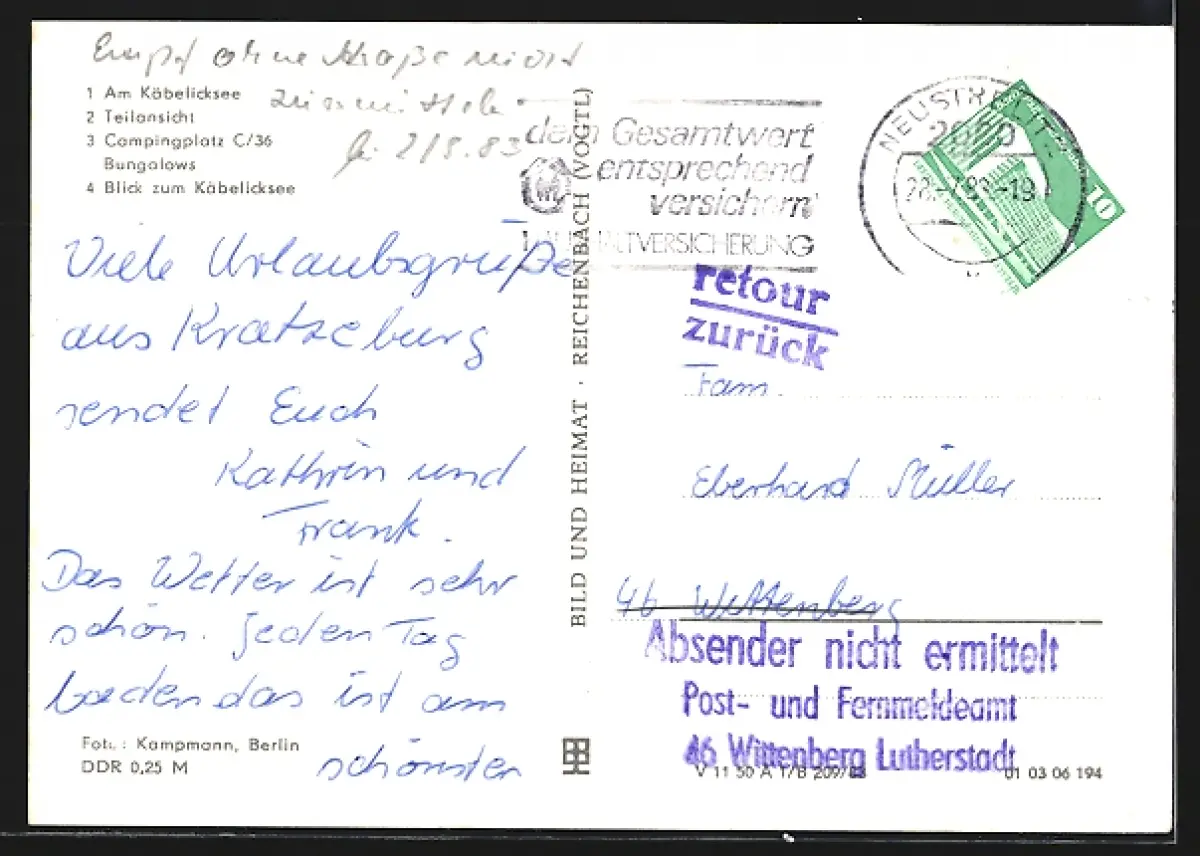 Empf ohne Straße nicht
zu ermitteln
2/8.83
1 Am Käbelicksee
2 Teilansicht
3 Campingplatz C/36
Bungalows
4 Blick zum Käbelicksee
Viele Urlaubsgrüße
aus Kratzeburg
sendet Euch
Kathrin und
Frank.
Das Wetter ist sehr
schön. Jeden Tag
baden das ist am
schönsten
Fot.: Kampmann, Berlin
DDR 0,25 M
BILD UND HEIMAT · REICHENBACH (VOGTL)
dem Gesamtwert
entsprechend
versichern
HAUSHALTVERSICHERUNG
NEUSTRELITZ
2080
-19
10
retour
zurück
Fam.
Eberhard Müller
46 Wittenberg
Absender nicht ermittelt
Post- und Fernmeldeamt
46 Wittenberg Lutherstadt
V 11 50 A 1/B 209/83
01 03 06 194